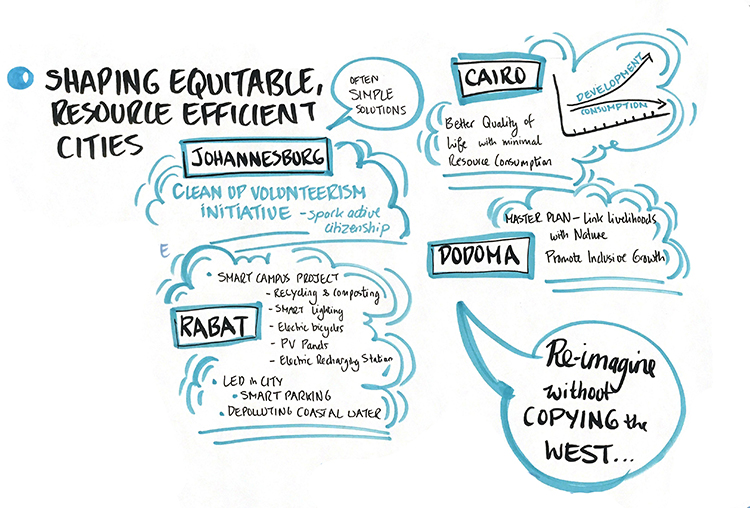 SHAPING EQUITABLE,
RESOURCE EFFICIENT
CITIES
OFTEN
SIMPLE
SOLUTIONS
JOHANNESBURG
CLEAN UP VOLUNTEERISM
INITIATIVE - spark active
citizenship
E
RABAT
• SMART CAMPUS PROJECT
- Recycling & Composting
- SMART Lighting
- Electric bicycles
- PV Panels
- Electric Recharging Station
• LED in CITY
• SMART PARKING
• DEPOLLUTING COASTAL WATER
CAIRO
DEVELOPMENT
CONSUMPTION
Better Quality of
Life with minimal
Resource Consumption
DODOMA
MASTER PLAN - Link Livelihoods
with Nature
Promote Inclusive Growth
Re-imagine
without
COPYING the
WEST...